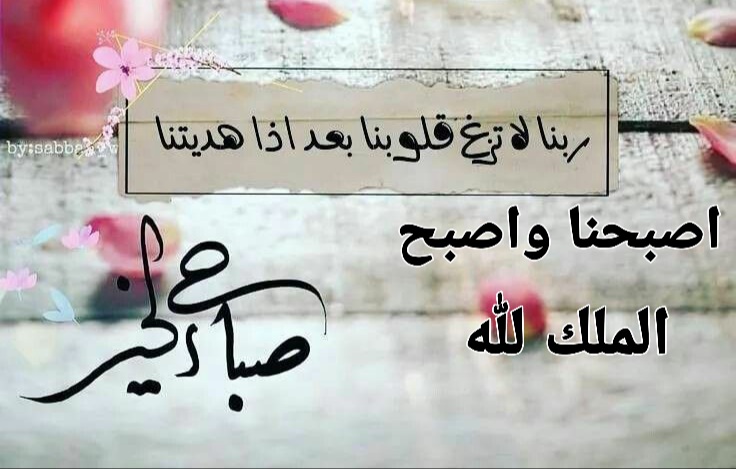 ربنا لا تزغ قلوبنا بعد اذا هديتنا
اصبحنا واصبح
الملك لله
صباح الخير